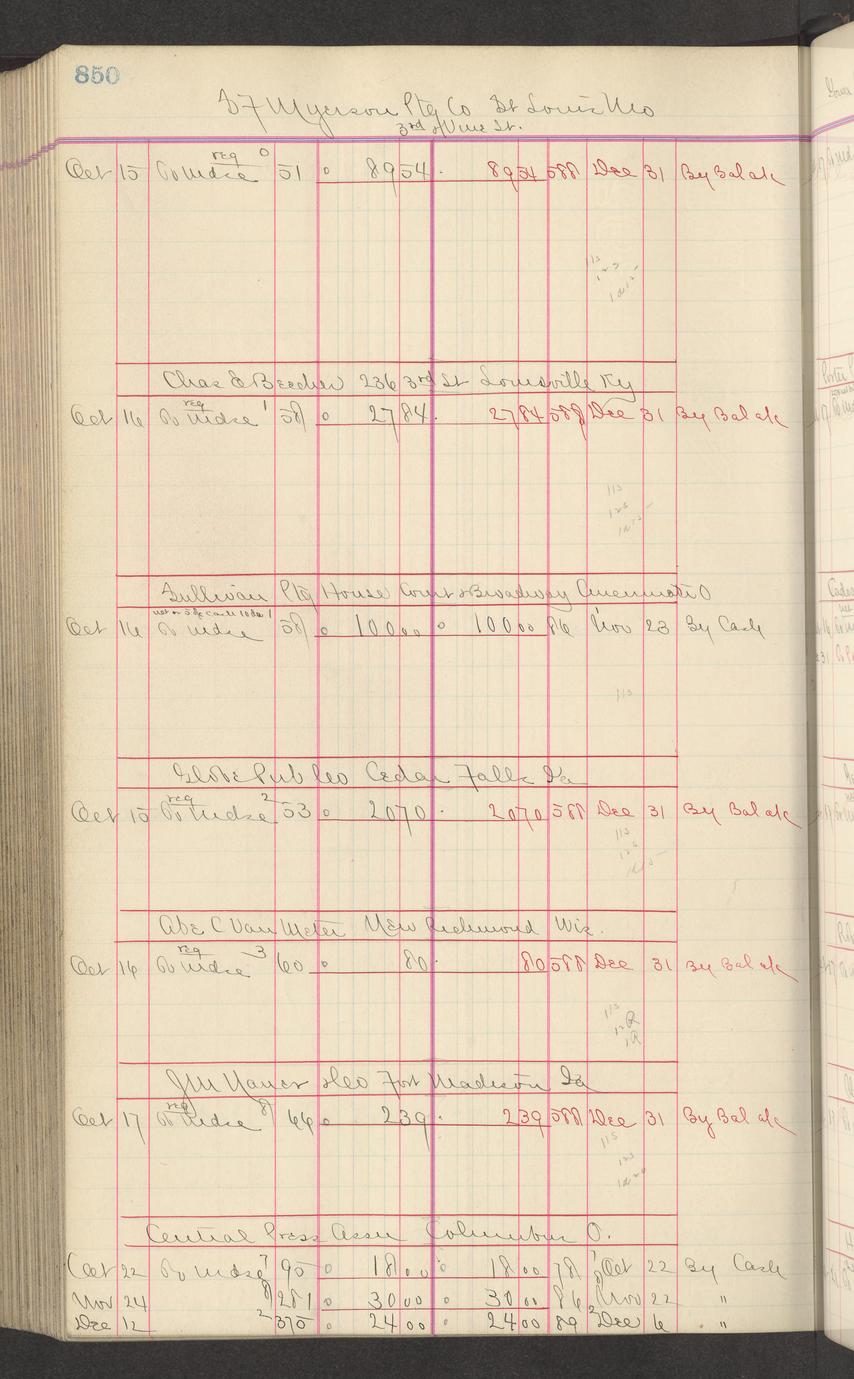 850
S F Myerson Ptg Co St Louis Mo
3rd & Vine St.
req 0
Oct 15 To Mdse 51 89 54 89 54 588 Dec 31 By Bal ak
115
Chas E Beecher 236 3rd St Louisville Ky
req 1
Oct 16 To Mdse 58 27 84 27 84 588 Dec 31 By Bal ak
115
125
Sullivan Ptg House Court & Broadway Cincinnati O
Oct 16 To Mdse 58 100 00 100 00 86 Nov 23 By Cash
115
Globe Pub Co Cedar Falls Ia
req 2
Oct 15 To Mdse 53 20 70 20 70 588 Dec 31 By Bal ak
115
125
Abe C Van Meter New Richmond Wis.
req 3
Oct 16 To Mdse 60 80 80 588 Dec 31 By Bal ak
115
J M Namer & Co Fort Madison Ia
req 8
Oct 17 To Mdse 66 2 39 2 39 588 Dec 31 By Bal ak
115
125
Central Press Assn Columbus O.
Oct 22 To Mdse 7 95 18 00 18 00 78 Oct 22 By Cash
Nov 24 8 281 30 00 30 00 86 Nov 22 "
Dec 12 2 375 24 00 24 00 89 Dec 6 "